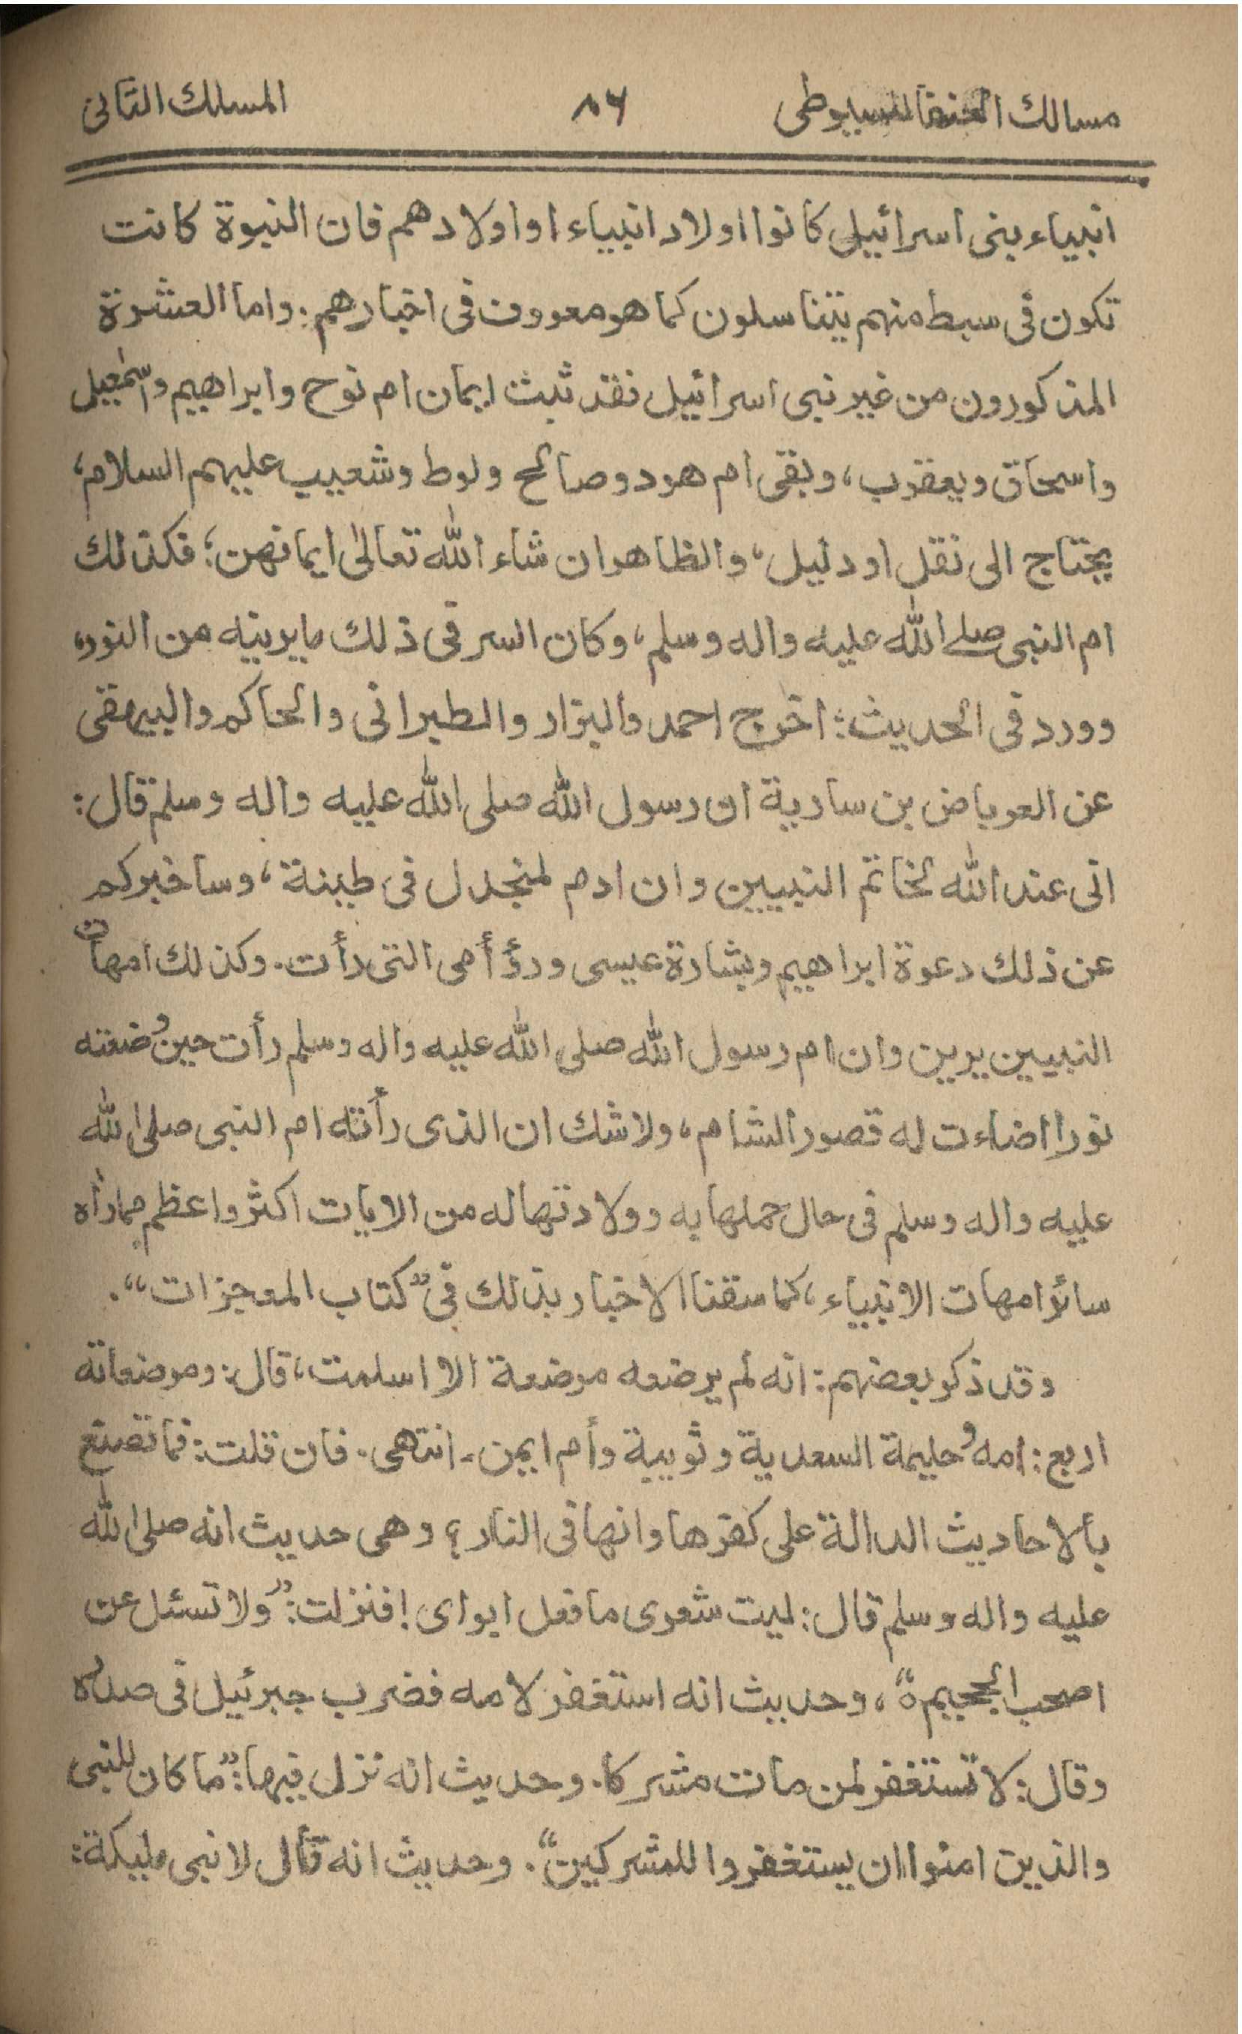 مسالك الحنفا للسيوطى ٨٦ المسلك الثانى
انبياء بنى اسرائيل كانوا اولاد انبياء او اولادهم فان النبوة كانت
تكون فى سبط منهم يتناسلون كما هو معروف فى اخبارهم. واما العشرة
المذكورون من غير نبى اسرائيل فقد ثبت ايمان ام نوح وابراهيم واسمٰعيل
واسحاق ويعقوب، وبقى ام هود وصالح ولوط وشعيب عليهم السلام،
يحتاج الى نقل او دليل، والظاهر ان شاء الله تعالىٰ ايمانهن؛ فكذالك
ام النبى صلے الله عليه واله وسلم، وكان السر فى ذلك ما يرينه من النور،
وورد فى الحديث: اخرج احمد والبزار والطبرانى والحاكم والبيهقى
عن العرباض بن سارية ان رسول الله صلى الله عليه واله وسلم قال:
انى عند الله لخاتم النبيين وان ادم لمنجدل فى طينة، وساخبركم
عن ذلك دعوة ابراهيم وبشارة عيسى ورؤ أمى التى رأت. وكذلك امهات
النبيين يرين وان ام رسول الله صلى الله عليه واله وسلم رأت حين وضعته
نورا اضاءت له قصور الشام، ولا شك ان الذى رأته ام النبى صلى الله
عليه واله وسلم فى حال حملها به وولادتها له من الايات اكثر واعظم مما رأه
سائر امهات الانبياء، كما سقنا الاخبار بذلك فى ”كتاب المعجزات“.
وقد ذكر بعضهم: انه لم يرضعه مرضعة الا اسلمت، قال: ومرضعاته
اربع: امه وحليمة السعدية وثويبية وأم ايمن۔ انتهى. فان قلت: فما تصنع
بالاحاديث الدالة على كفرها وانها فى النار؟ وهى حديث انه صلى الله
عليه واله وسلم قال: ليت شعرى ما فعل ابواى! فنزلت: ”ولا تسئل عن
اصحب الجحيم ه“، وحديث انه استغفر لامه فضرب جبرئيل فى صدره
وقال: لا تستغفر لمن مات مشركا. وحديث انه نزل فيها: ”ما كان للنبى
والذين امنوا ان يستغفروا للمشركين“. وحديث انه قال لابنى مليكة: